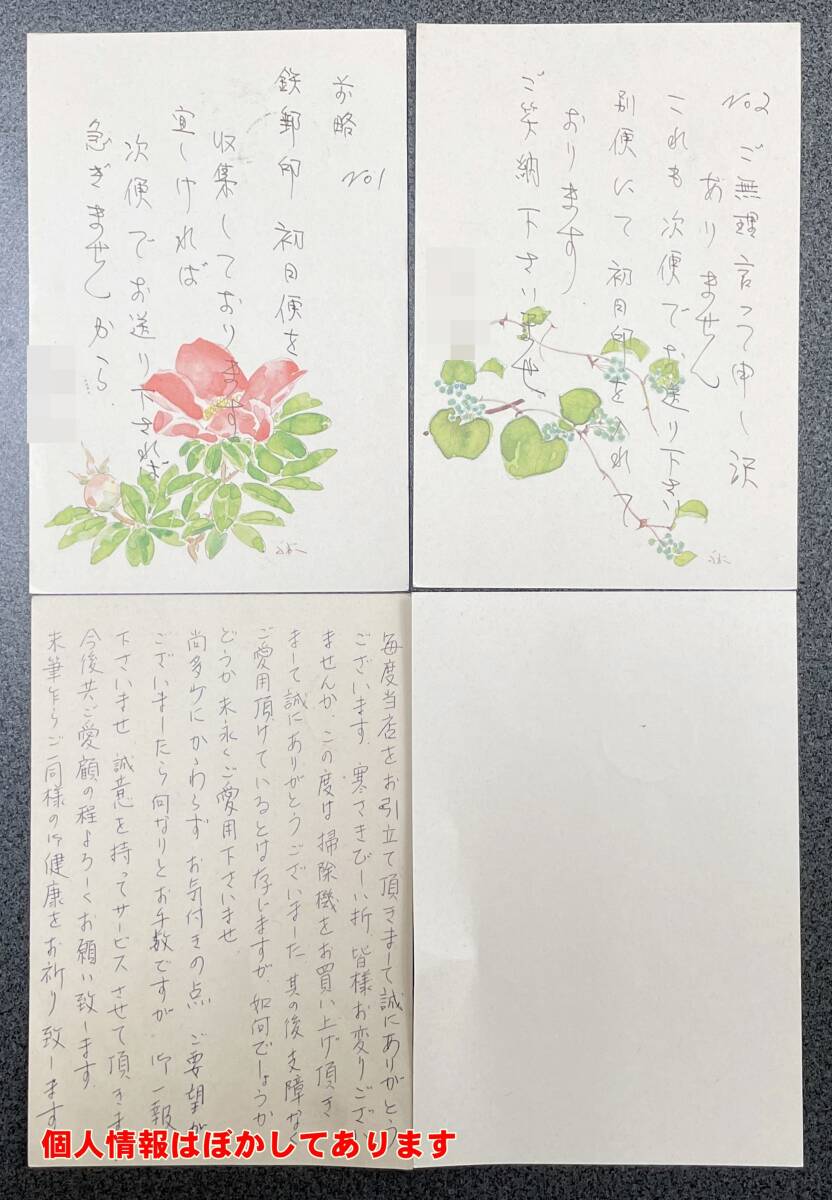 前略
No1
鉄郵印 初日便を
収集しております
宜しければ
次便でお送り下されば
急ぎませんから
No2
ご無理言って申し訳
ありません
これも次便でお送り下さい
別便にて初日印を入れて
おります
ご笑納下さいませ
毎度当店をお引立て頂きまして誠にありがとう
ございます、寒さきびしい折、皆様お変りござい
ませんか、この度は掃除機をお買い上げ頂き
まして誠にありがとうございました 其の後支障なく
ご愛用頂けているとは存じますが、如何でしょうか
どうか末永くご愛用下さいませ
尚多少にかかわらず お気付きの点 ご要望が
ございましたら何なりとお手数ですが 御一報
下さいませ 誠意を持ってサービスさせて頂きま
今後共ご愛顧の程よろしくお願い致します
末筆乍らご一同様の御健康をお祈り致します
個人情報はぼかしてあります